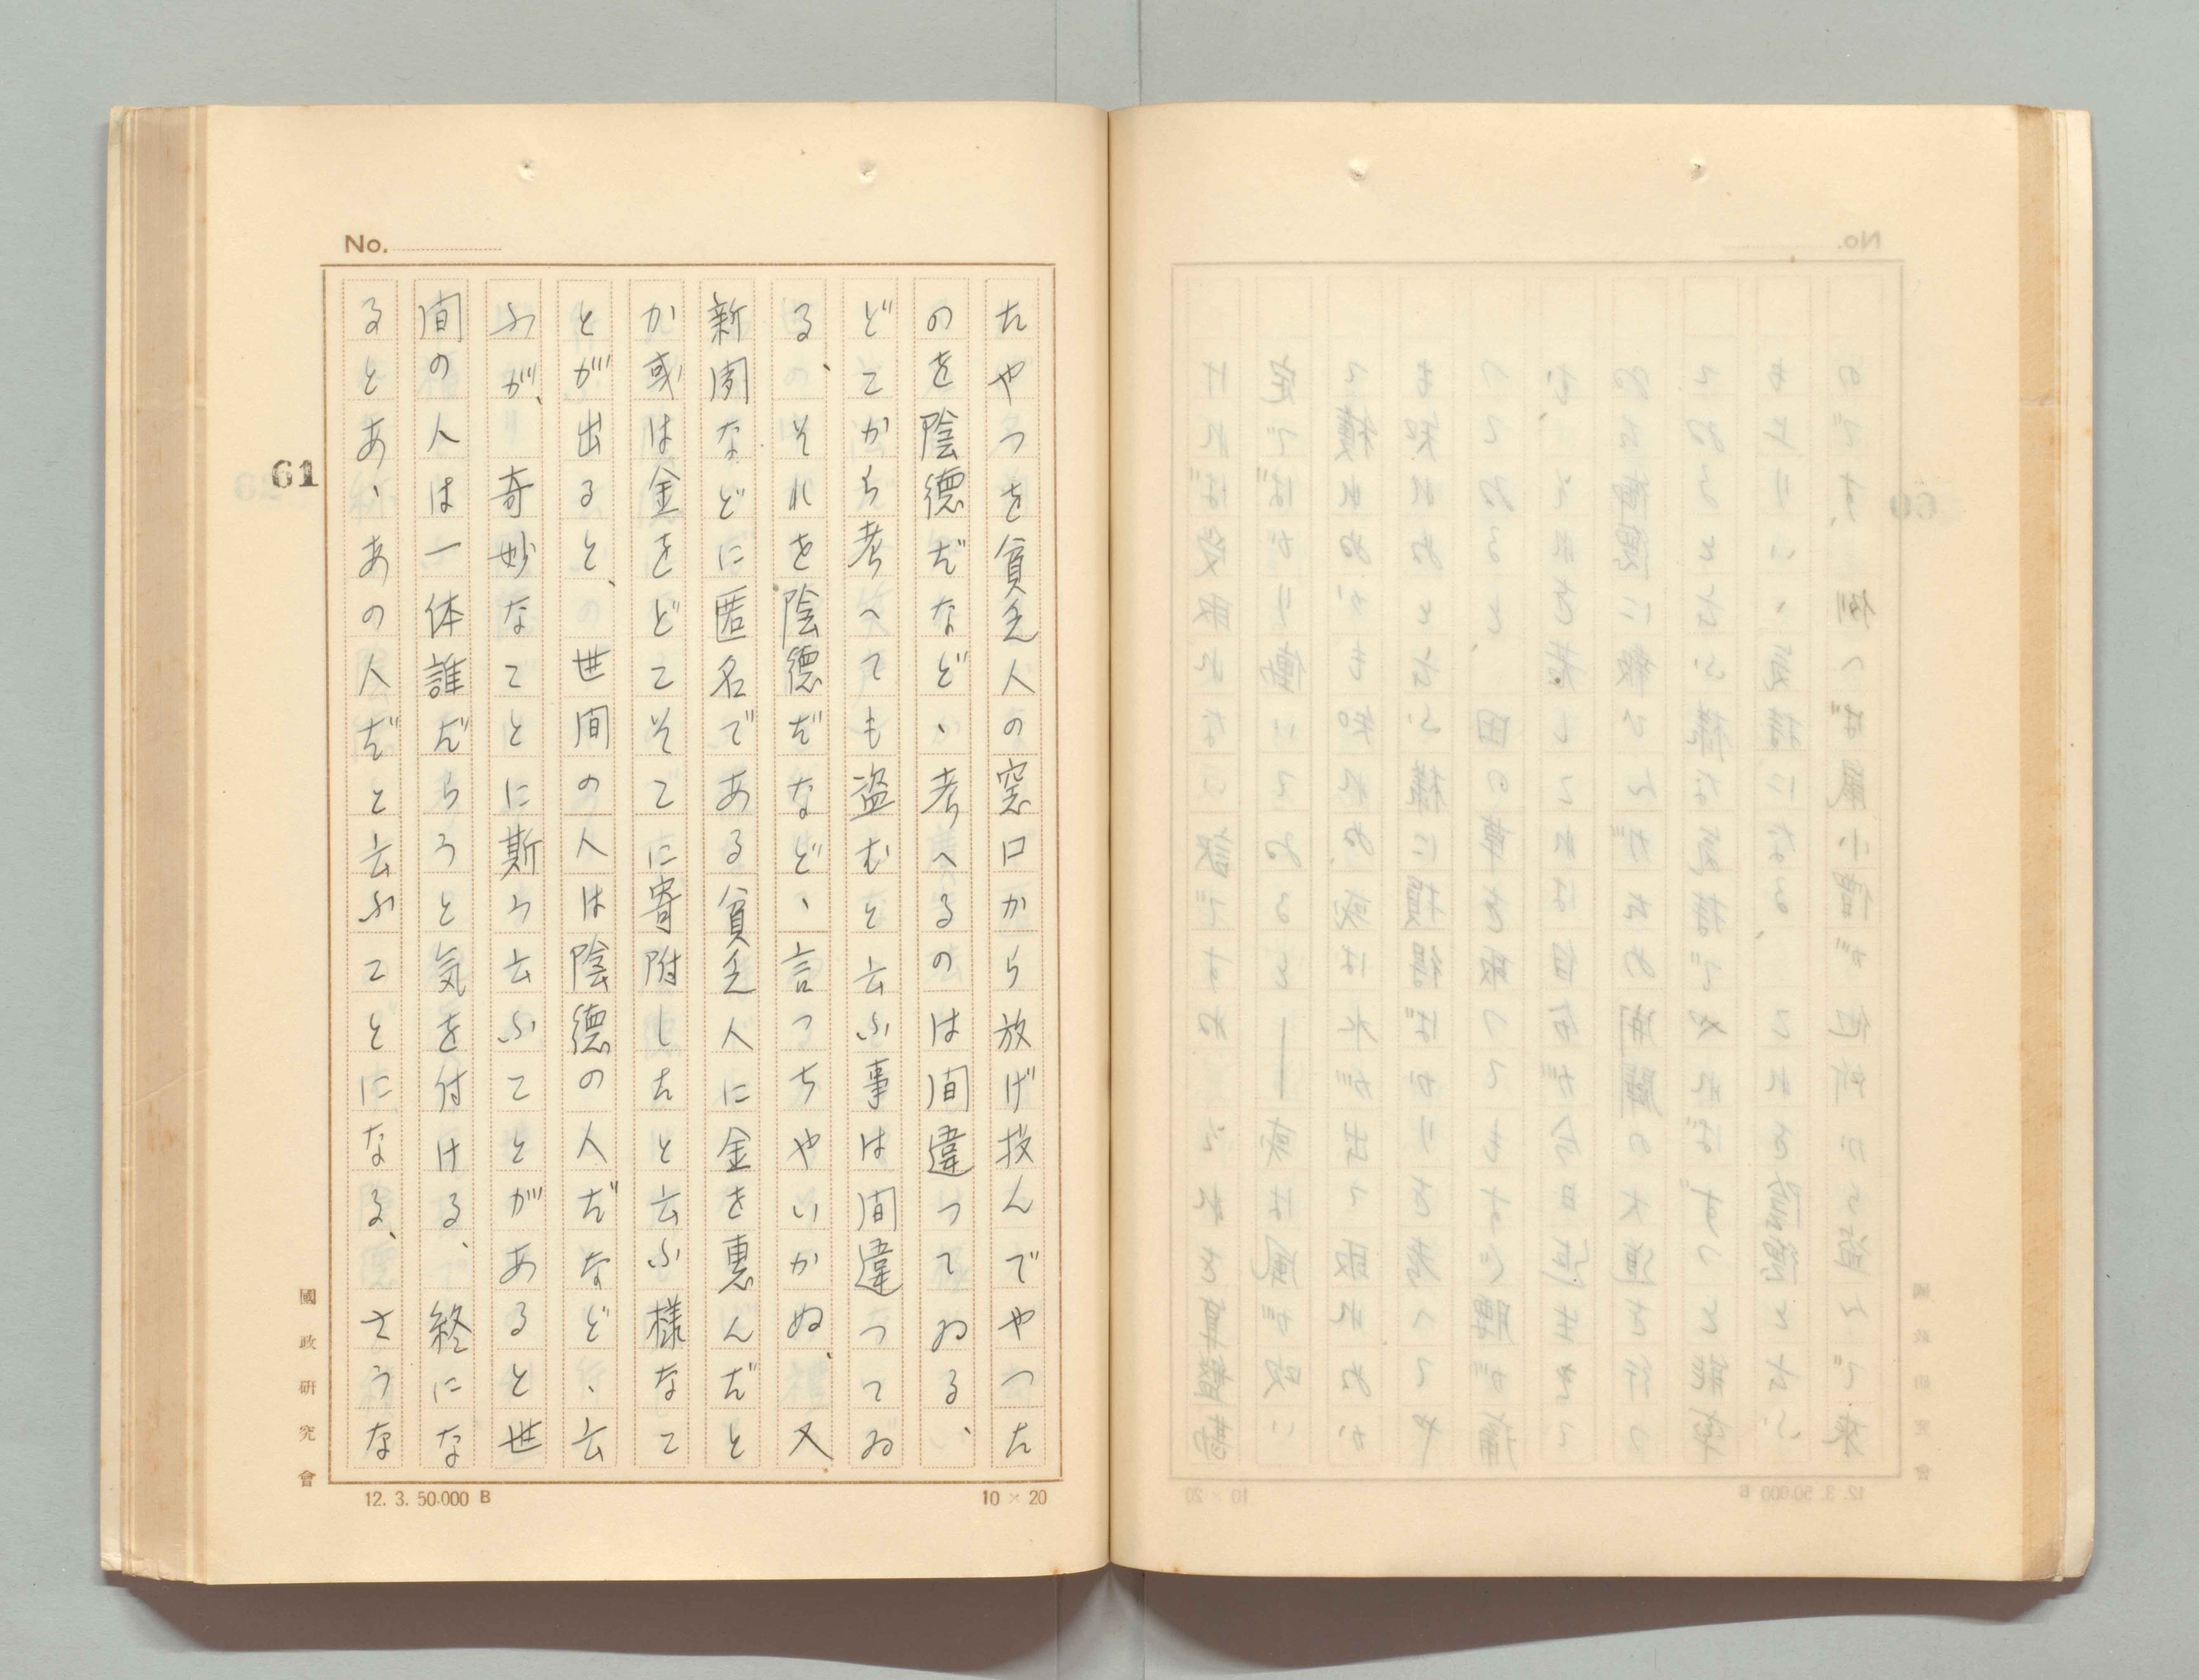 No.
たやつを貧乏人の窓口から放げ投んでやつた
のを陰徳だなどゝ考へるのは間違つてゐる、
どこから考へても盗むと云ふ事は間違つてゐ
る、それを陰徳だなどゝ言つちやいかぬ、又
新聞などに匿名である貧乏人に金を恵んだと
か或は金をどこそこに寄附したと云ふ様なこ
とが出ると、世間の人は陰徳の人だなどゝ云
ふが、奇妙なことに斯う云ふことがあると世
間の人は一体誰だらうと気を付ける、終にな
るとあゝあの人だと云ふことになる、さうな
61
國政研究會
12. 3. 50.000 B
10 × 20